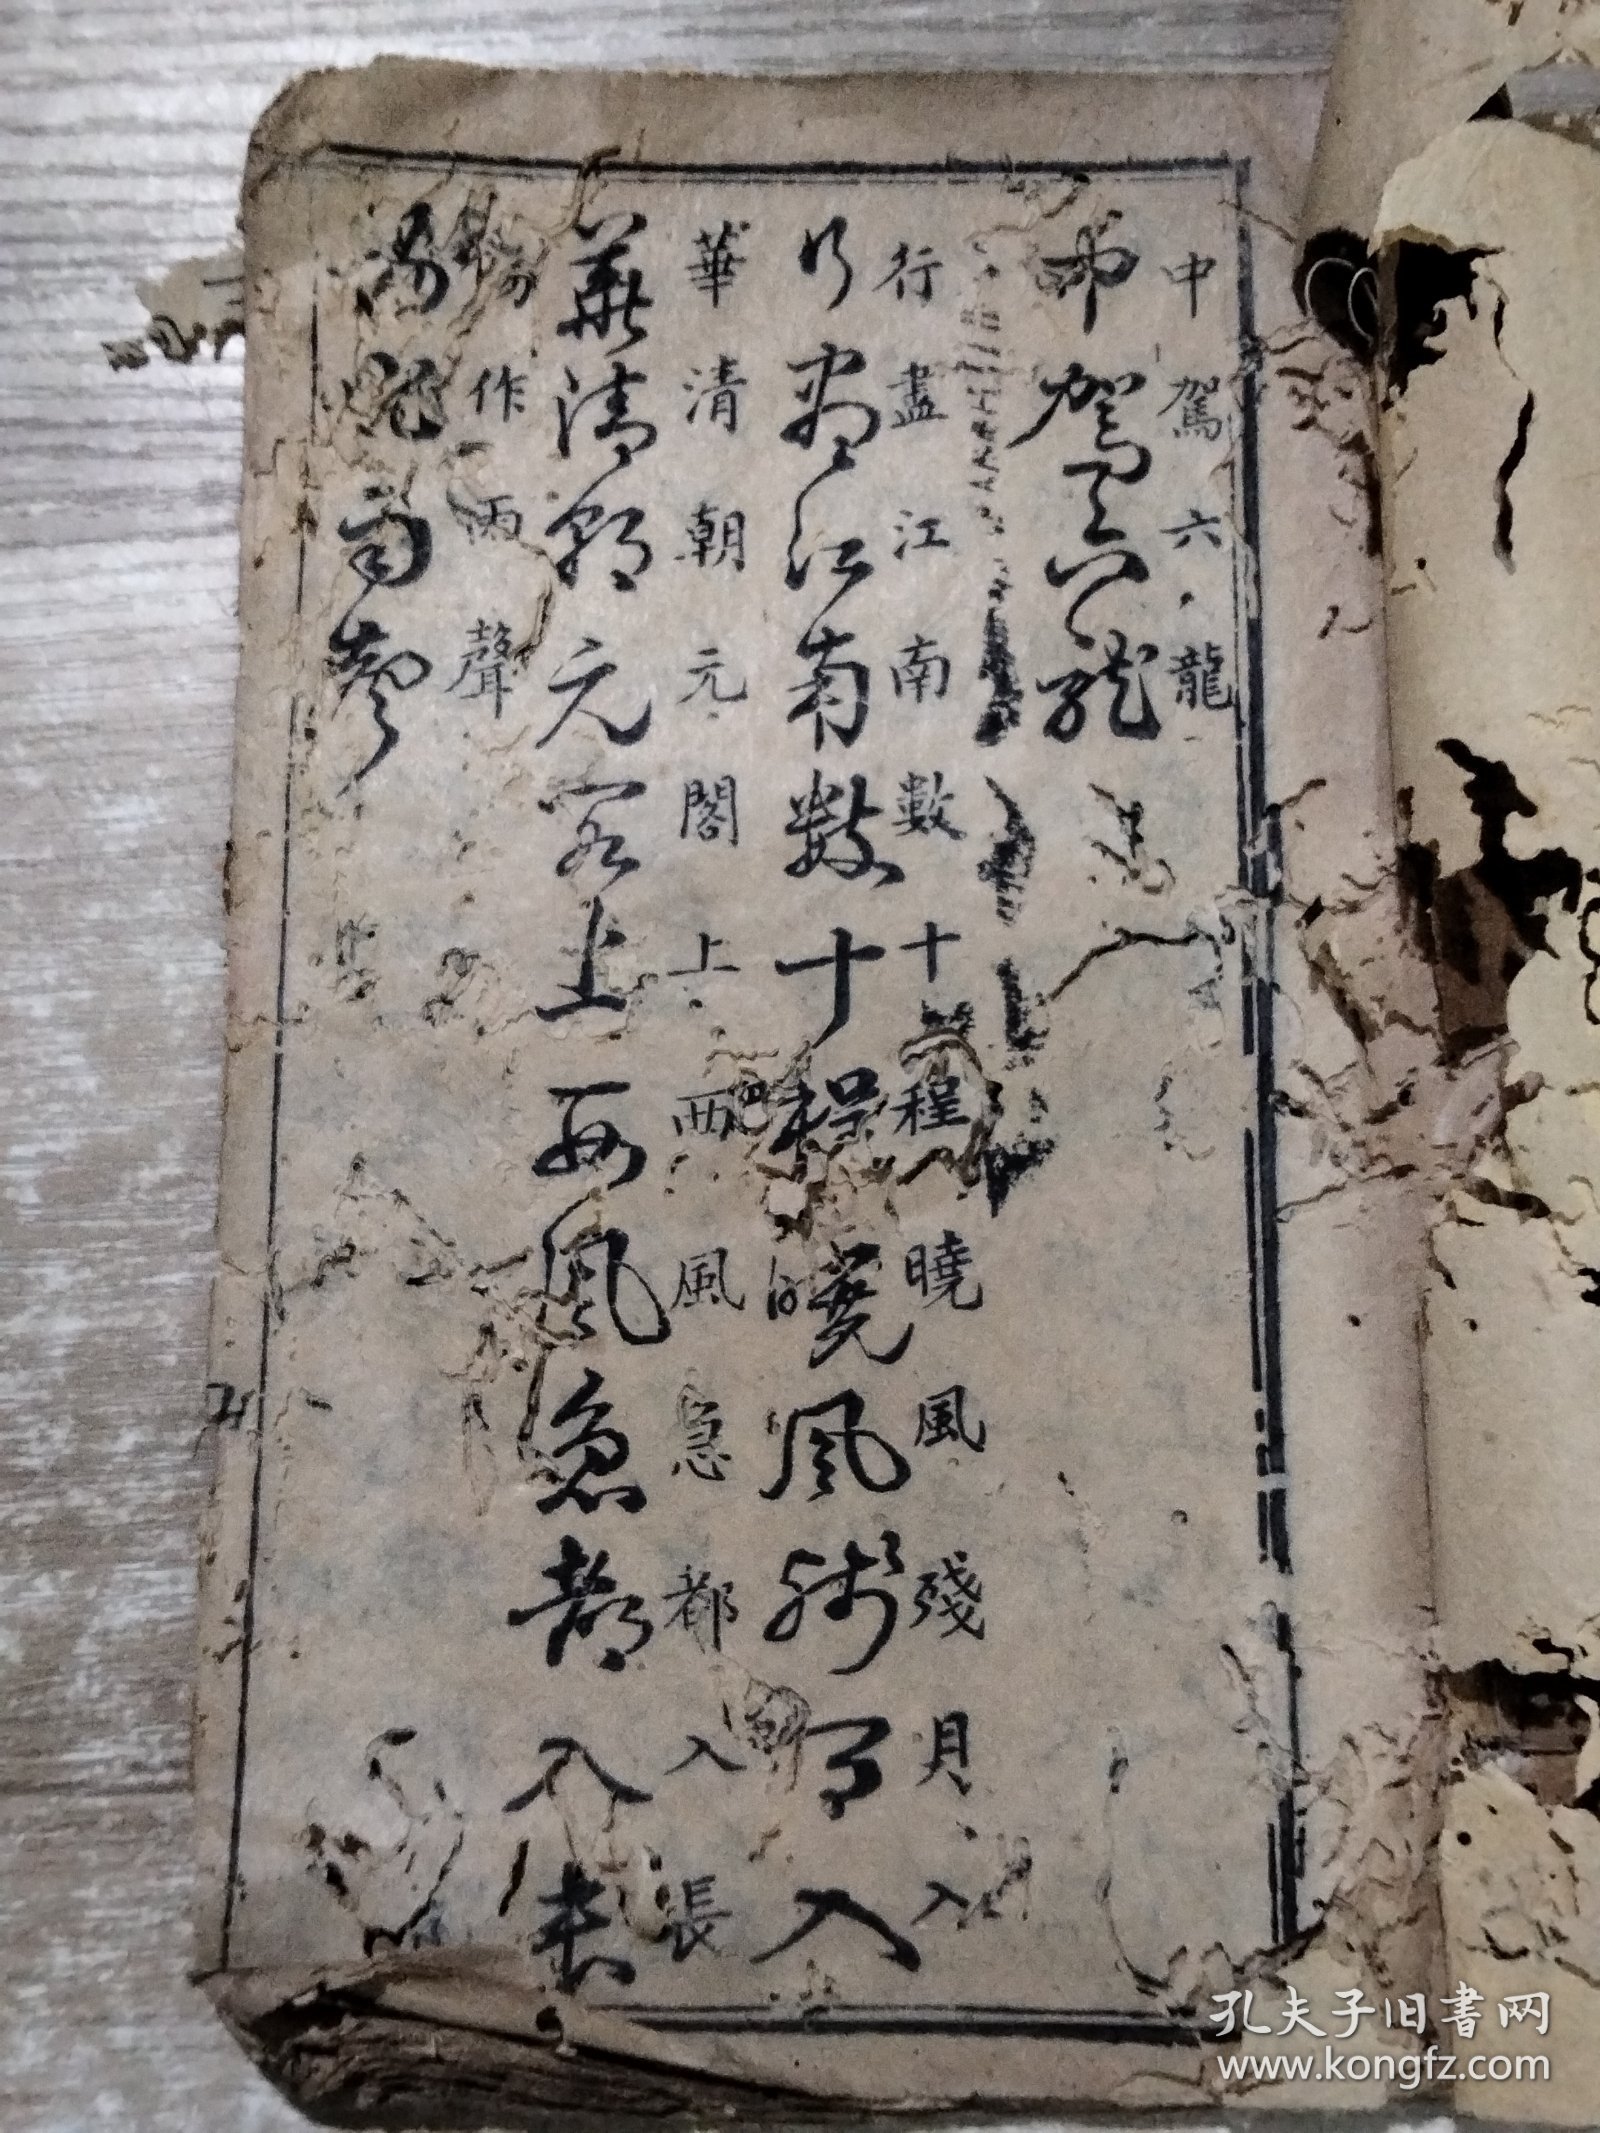 中駕六龍
中駕六龍
行盡江南數十程曉風殘月入
行盡江南數十程曉風殘月入
華清朝元閣上西風急都入長
華清朝元閣上西風急都入長
楊作雨聲
楊作雨聲
孔夫子旧書网
www.kongfz.com